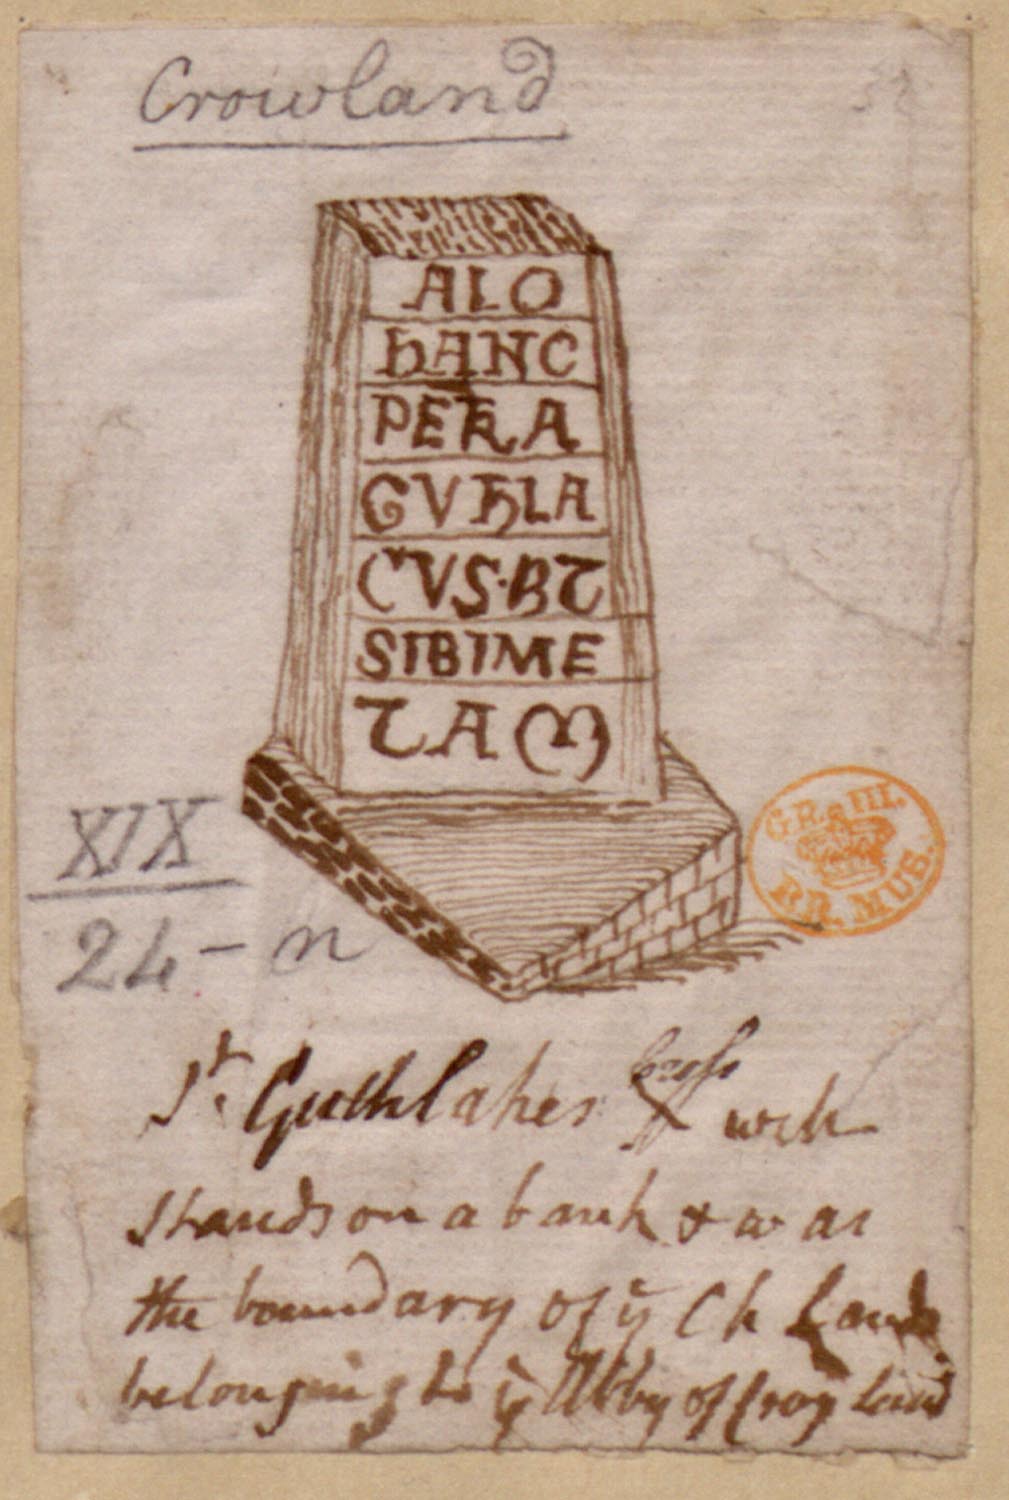 Crowland
AIO
HANC
PETRA
GVHLA
CVS·BT
SIBIME
TAM
XIX
24-n
G.R. III.
BR. MUS.
St. Guthlakes Cross wch
stands on a bank & w as
the boundary of ye Ch Lands
belonging to ye Abby of Croyland